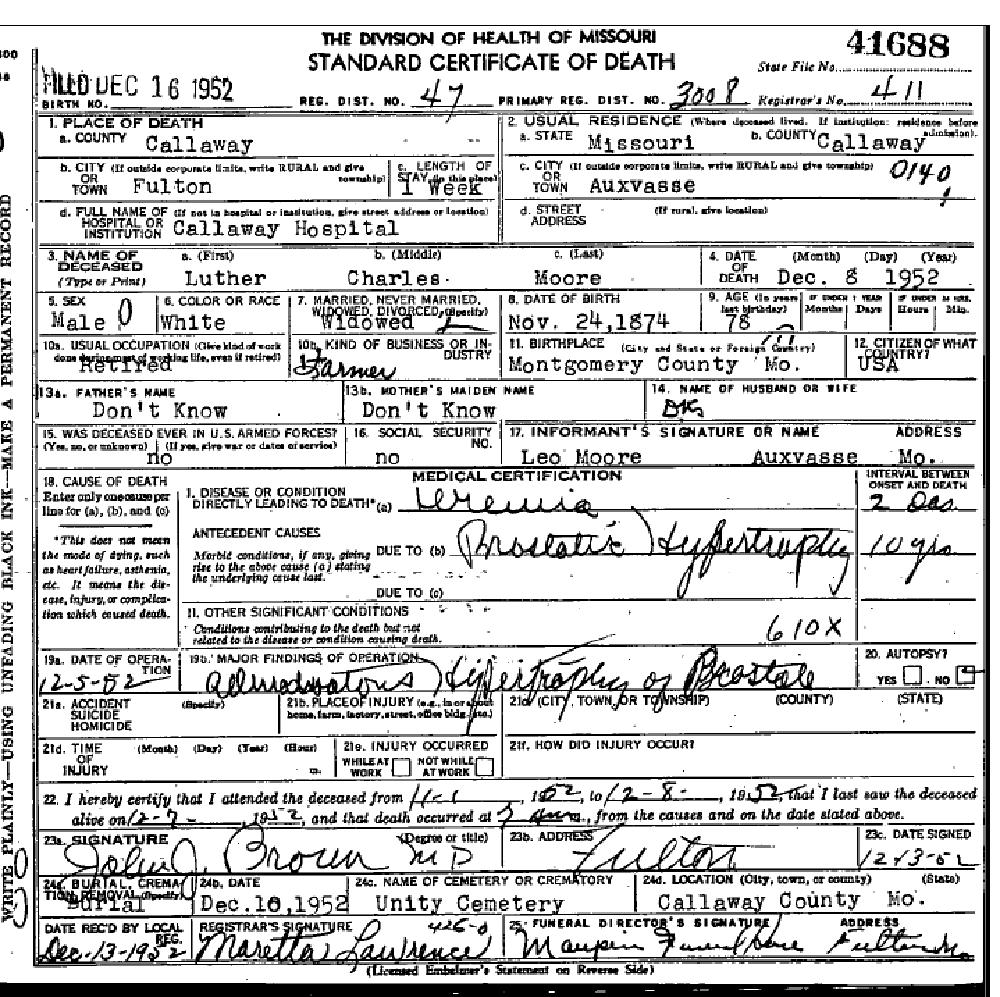 THE DIVISION OF HEALTH OF MISSOURI
STANDARD CERTIFICATE OF DEATH
41688
State File No.
FILED DEC 16 1952
BIRTH NO. REG. DIST. NO. 47 PRIMARY REG. DIST. NO. 3008 Registrar's No. 411
1. PLACE OF DEATH
a. COUNTY Callaway
2. USUAL RESIDENCE (Where deceased lived. If institution: residence before admission).
a. STATE Missouri b. COUNTY Callaway
b. CITY (If outside corporate limits, write RURAL and give township) OR TOWN Fulton
c. LENGTH OF STAY (in this place) 1 Week
c. CITY (If outside corporate limits, write RURAL and give township) OR TOWN Auxvasse 0140
d. FULL NAME OF (If not in hospital or institution, give street address or location) HOSPITAL OR INSTITUTION Callaway Hospital
d. STREET ADDRESS (If rural, give location)
3. NAME OF DECEASED (Type or Print) a. (First) Luther b. (Middle) Charles c. (Last) Moore
4. DATE OF DEATH (Month) (Day) (Year) Dec. 8 1952
5. SEX Male 0
6. COLOR OR RACE White
7. MARRIED, NEVER MARRIED, WIDOWED, DIVORCED (Specify) Widowed
8. DATE OF BIRTH Nov. 24,1874
9. AGE (In years last birthday) 78 IF UNDER 1 YEAR Months Days IF UNDER 24 HRS. Hours Min.
10a. USUAL OCCUPATION (Give kind of work done during most of working life, even if retired) Retired
10b. KIND OF BUSINESS OR INDUSTRY Farmer
11. BIRTHPLACE (City and State or Foreign Country) Montgomery County Mo.
12. CITIZEN OF WHAT COUNTRY? USA
13a. FATHER'S NAME Don't Know
13b. MOTHER'S MAIDEN NAME Don't Know
14. NAME OF HUSBAND OR WIFE DK
15. WAS DECEASED EVER IN U.S. ARMED FORCES? (Yes, no, or unknown) (If yes, give war or dates of service) no
16. SOCIAL SECURITY NO. no
17. INFORMANT'S SIGNATURE OR NAME ADDRESS
Leo Moore Auxvasse Mo.
18. CAUSE OF DEATH
Enter only one cause per line for (a), (b), and (c)
*This does not mean the mode of dying, such as heart failure, asthenia, etc. It means the disease, injury, or complication which caused death.
MEDICAL CERTIFICATION
INTERVAL BETWEEN ONSET AND DEATH
I. DISEASE OR CONDITION DIRECTLY LEADING TO DEATH* (a) Uremia 2 Das.
ANTECEDENT CAUSES
Morbid conditions, if any, giving rise to the above cause (a) stating the underlying cause last.
DUE TO (b) Prostatic Hypertrophy 10 yrs
DUE TO (c)
II. OTHER SIGNIFICANT CONDITIONS
Conditions contributing to the death but not related to the disease or condition causing death.
610X
19a. DATE OF OPERATION 12-5-52
19b. MAJOR FINDINGS OF OPERATION Hypertrophy of Prostate
20. AUTOPSY? YES NO
21a. ACCIDENT SUICIDE HOMICIDE (Specify)
21b. PLACE OF INJURY (e.g., in or about home, farm, factory, street, office bldg., etc.)
21c. (CITY, TOWN, OR TOWNSHIP) (COUNTY) (STATE)
21d. TIME OF INJURY (Month) (Day) (Year) (Hour) m.
21e. INJURY OCCURRED WHILE AT WORK NOT WHILE AT WORK
21f. HOW DID INJURY OCCUR?
22. I hereby certify that I attended the deceased from 11-1, 1952, to 12-8-, 1952, that I last saw the deceased
alive on 12-7-, 1952, and that death occurred at m., from the causes and on the date stated above.
23a. SIGNATURE (Degree or title) John J. Brown MD
23b. ADDRESS Fulton
23c. DATE SIGNED 12-13-52
24a. BURIAL, CREMATION, REMOVAL (Specify) Burial
24b. DATE Dec.10,1952
24c. NAME OF CEMETERY OR CREMATORY Unity Cemetery
24d. LOCATION (City, town, or county) (State) Callaway County Mo.
DATE REC'D BY LOCAL REG. Dec-13-1952
REGISTRAR'S SIGNATURE 426-0 Maretta Lawrence
25. FUNERAL DIRECTOR'S SIGNATURE ADDRESS
Maupin Funeral Home Fulton Mo.
(Licensed Embalmer's Statement on Reverse Side)
WRITE PLAINLY—USING UNFADING BLACK INK—MAKE A PERMANENT RECORD